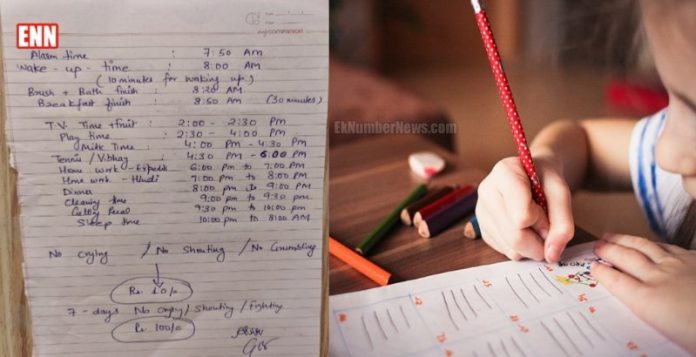 ENN
Alarm time : 7:50 AM
Wake-up-time : 8:00 AM
(10 minutes for waking up)
Brush + Bath finish : 8:20 AM
Breakfast finish : 8:50 AM (30 minutes)
T.V. Time + fruit : 2:00 - 2:30 PM
Play time : 2:30 - 4:00 PM
Milk Time : 4:00 PM - 4:30 PM
Tennis / : 4:30 PM - 6:00 PM
Home work - : 6:00 PM to 7:00 PM
Home work - Hindi 7:00 PM to 8:00 PM
Dinner 8:00 pm to 9:00 PM
Cleaning time 9:00 pm to 9:30 pm
9:30 pm to 10:00 pm
Sleep time 10:00 pm to 8:00 AM
No crying / No Shouting / No Grumbling
Rs. 10/-
7-days No crying / Shouting / Fighting
Rs. 100/-
EkNumberNews.com